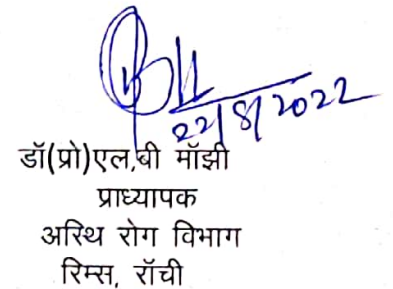 22/8/2022
डॉ(प्रो)एल,बी मॉझी
प्राध्यापक
अस्थि रोग विभाग
रिम्स, रॉची